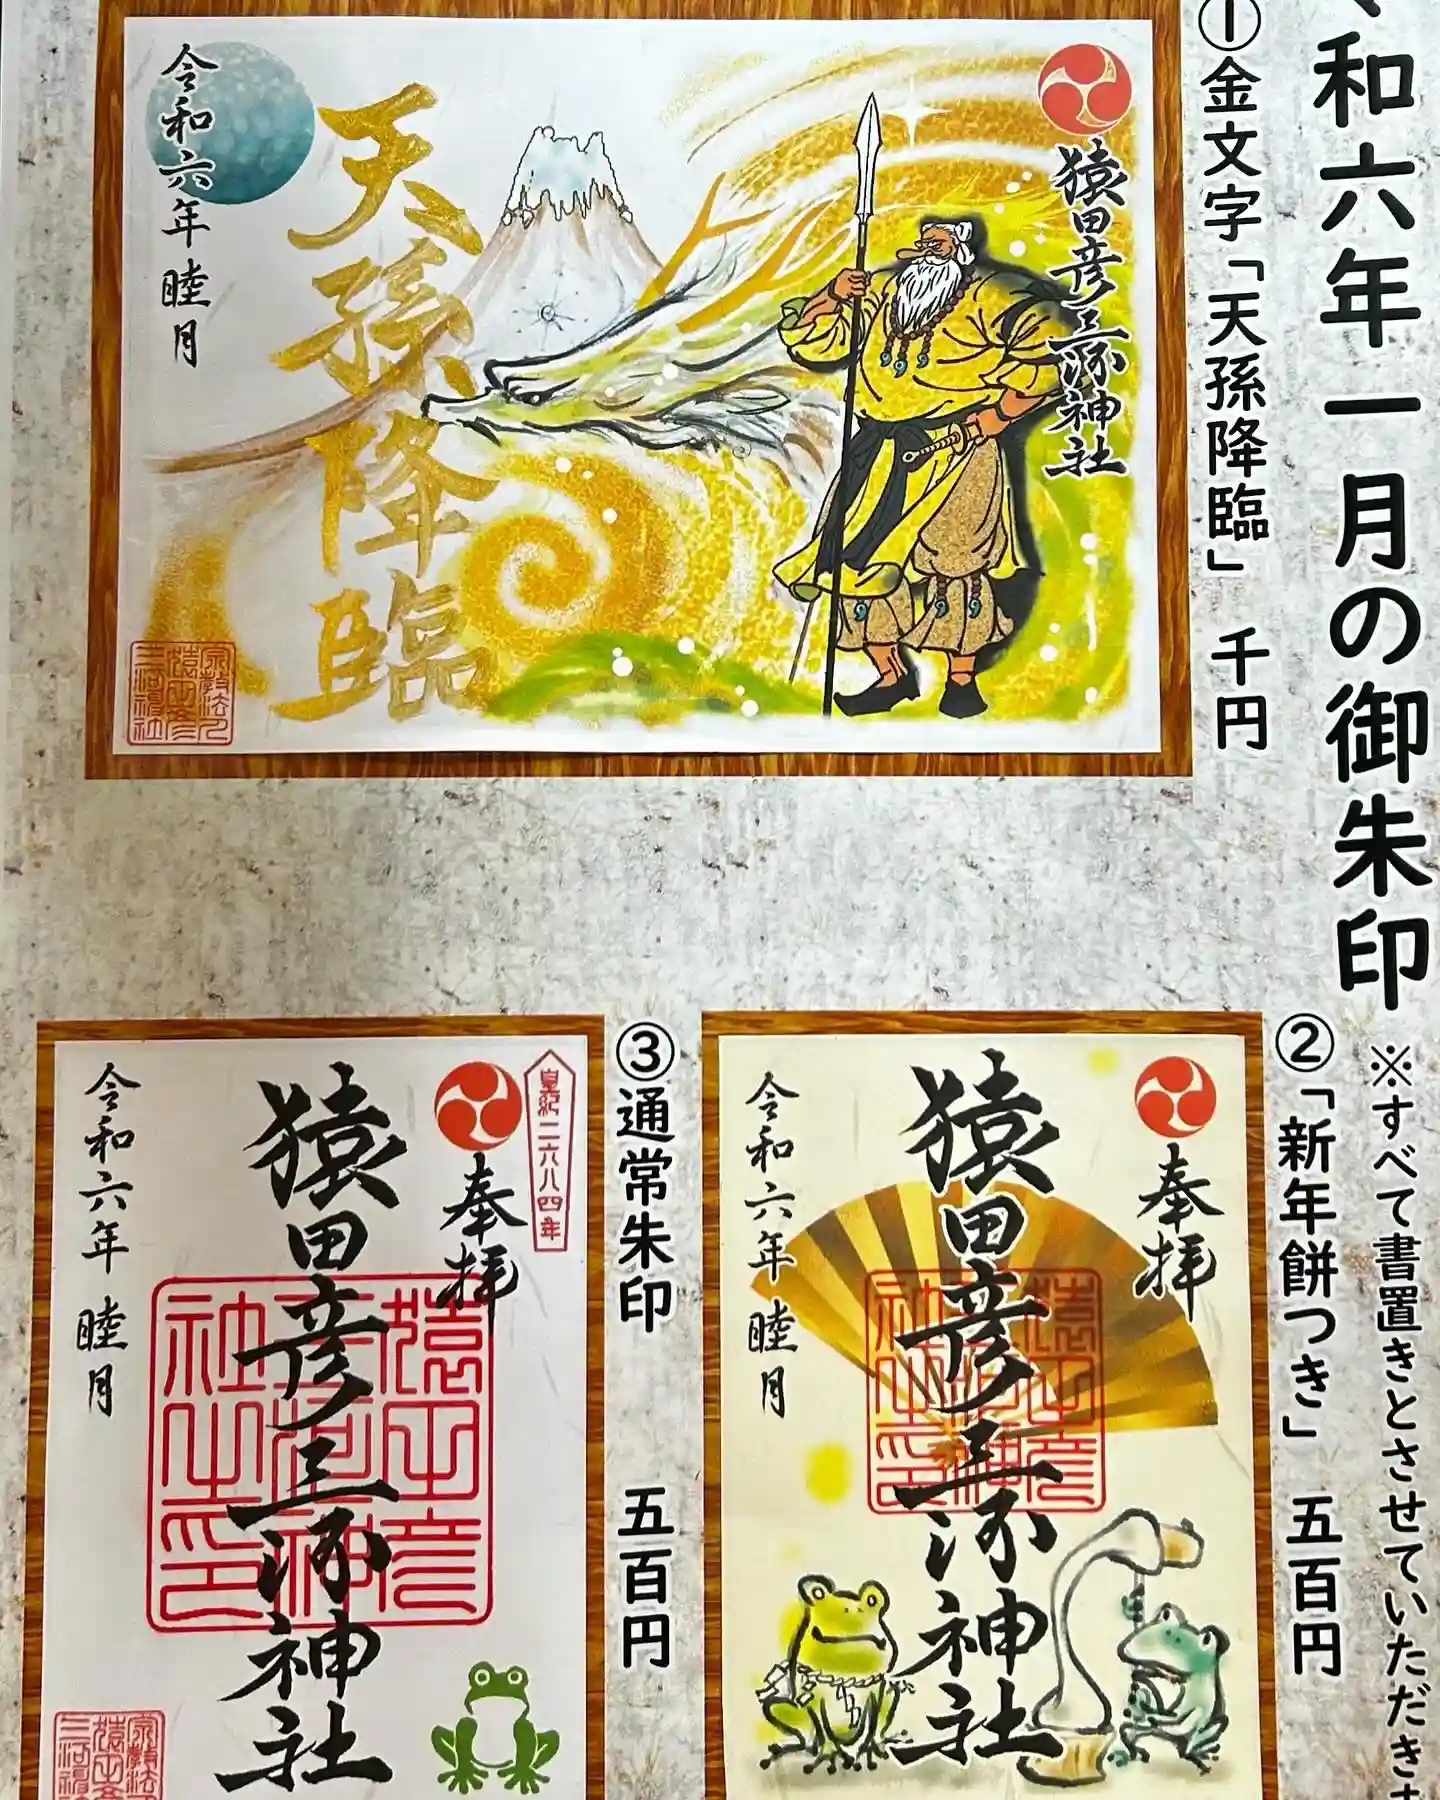 和六年一月の御朱印
※すべて書置きとさせていただきま
①金文字「天孫降臨」 千円
猿田彦三河神社
天孫降臨
令和六年 睦月
②「新年餅つき」 五百円
奉拝
猿田彦三河神社
令和六年 睦月
③通常朱印 五百円
皇紀二六八四年
奉拝
猿田彦三河神社
令和六年 睦月